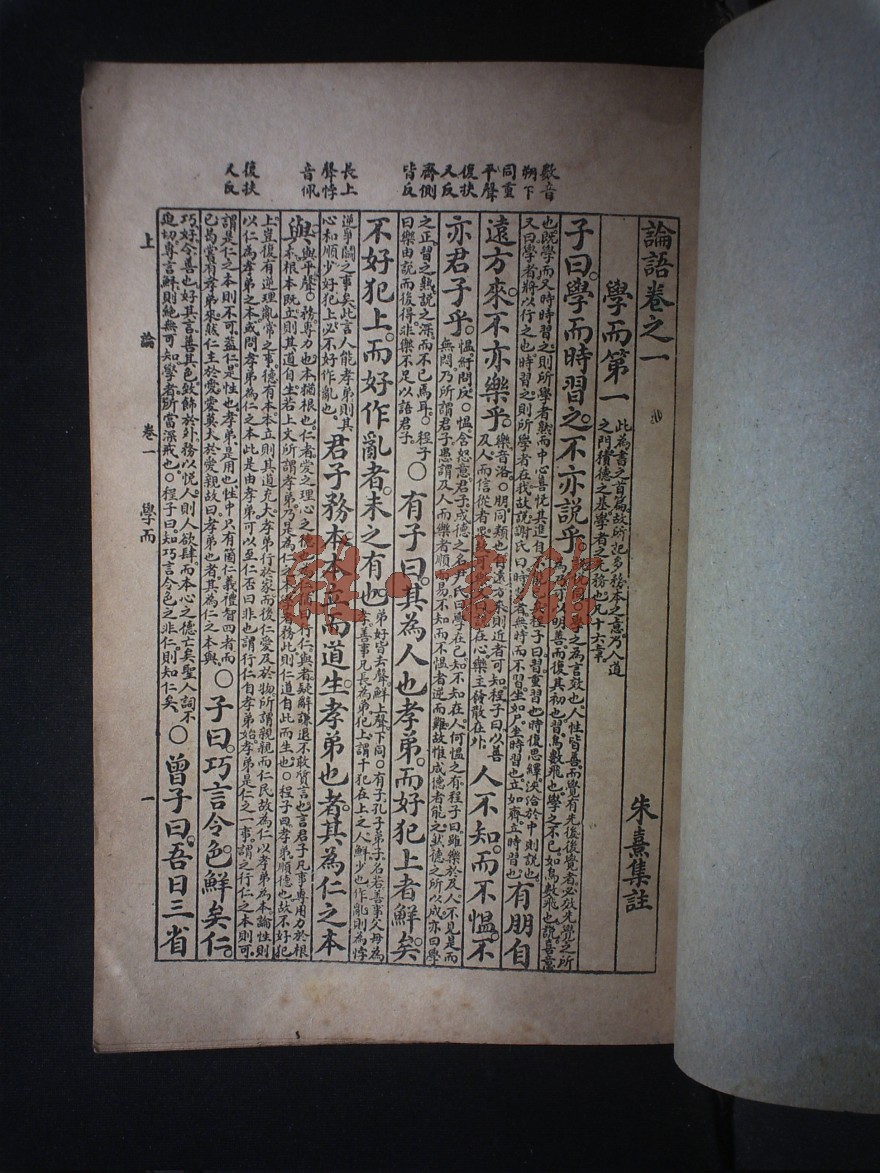 數音
朔下
同重
平聲
復扶
又反
齊側
皆反
長上
聲悖
音佩
復扶
又反
論語卷之一
朱熹集註
學而第一
此為書之首篇故所記多務本之意乃入道
之門積德之基學者之先務也凡十六章
子曰學而時習之不亦說乎
學之為言效也人性皆善而覺有先後後覺者必效先覺之所
為乃可以明善而復其初也習鳥數飛也學之不已如鳥數飛也說喜意
也既學而又時時習之則所學者熟而中心喜悅其進自不能已矣程子曰習重習也時復思繹浹洽於中則說也
又曰學者將以行之也時習之則所學者在我故說謝氏曰時習者無時而不習坐如尸坐時習也立如齊立時習也
有朋自
遠方來不亦樂乎
樂音洛○朋同類也自遠方來則近者可知程子曰以善
及人而信從者眾故可樂又曰說在心樂主發散在外
人不知而不慍不
亦君子乎
慍紆問反○慍含怒意君子成德之名尹氏曰學在己知不知在人何慍之有程子曰雖樂於及人不見是而
無悶乃所謂君子愚謂及人而樂者順而易不知而不慍者逆而難故惟成德者能之然德之所以成亦曰學
之正習之熟說之深而不已焉耳○程子
曰樂由說而後得非樂不足以語君子
○有子曰其為人也孝弟而好犯上者鮮矣
不好犯上而好作亂者未之有也
弟好皆去聲鮮上聲下同○有子孔子弟子名若善事父母為
孝善事兄長為弟犯上謂干犯在上之人鮮少也作亂則為悖
逆爭鬭之事矣此言人能孝弟則其
心和順少好犯上必不好作亂也
君子務本本立而道生孝弟也者其為仁之本
與
與平聲○務專力也本猶根也仁者愛之理心之德也為仁猶曰行仁與者疑辭謙退不敢質言也言君子凡事專用力於根
本根本既立則其道自生若上文所謂孝弟乃是為仁之本學者務此則仁道自此而生也○程子曰孝弟順德也故不好犯
上豈復有逆理亂常之事德有本本立則其道充大孝弟行於家而後仁愛及於物所謂親親而仁民故為仁以孝弟為本論性則
以仁為孝弟之本或問孝弟為仁之本此是由孝弟可以至仁否曰非也謂行仁自孝弟始孝弟是仁之一事謂之行仁之本則可
謂是仁之本則不可蓋仁是性也孝弟是用也性中只有箇仁義禮智四者而
已曷嘗有孝弟來然仁主於愛愛莫大於愛親故曰孝弟也者其為仁之本與
○子曰巧言令色鮮矣仁
巧好令善也好其言善其色致飾於外務以悅人則人欲肆而本心之德亡矣聖人詞不
迫切專言鮮則絕無可知學者所當深戒也○程子曰知巧言令色之非仁則知仁矣
○曾子曰吾日三省
上論 卷一 學而 一